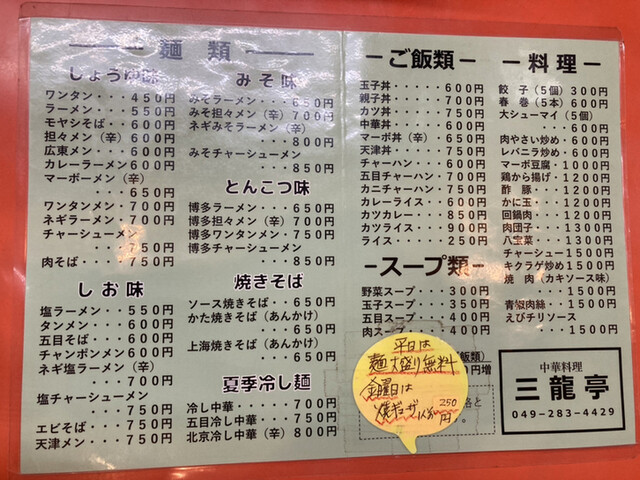 麺類
しょうゆ味
ワンタン・・・450円
ラーメン・・・550円
モヤシそば・・600円
担々メン（辛）600円
広東メン・・・600円
カレーラーメン600円
マーボーメン（辛）
・・・650円
ワンタンメン・700円
ネギラーメン・700円
チャーシューメン
・・・750円
肉そば・・・・750円
しお味
塩ラーメン・・550円
タンメン・・・600円
五目そば・・・600円
チャンポンメン600円
ネギ塩ラーメン（辛）
・・・700円
塩チャーシューメン
・・・750円
エビそば・・・750円
天津メン・・・750円
みそ味
みそラーメン・・・650円
みそ担々メン（辛）700円
ネギみそラーメン（辛）
・・・800円
みそチャーシューメン
・・・850円
とんこつ味
博多ラーメン・・・650円
博多担々メン（辛）700円
博多ワンタンメン・750円
博多チャーシューメン
・・・850円
焼きそば
ソース焼きそば・・650円
かた焼きそば（あんかけ）
・・・650円
上海焼きそば（あんかけ）
・・・650円
夏季冷し麺
冷し中華・・・・700円
五目冷し中華・・750円
北京冷し中華（辛）800円
ご飯類
玉子丼・・・・・600円
親子丼・・・・・700円
カツ丼・・・・・750円
中華丼・・・・・600円
マーボ丼（辛）・650円
天津丼・・・・・750円
チャーハン・・・600円
五目チャーハン・700円
カニチャーハン・750円
カレーライス・・600円
カツカレー・・・850円
カツライス・・・900円
ライス・・・・・250円
スープ類
野菜スープ・・・300円
玉子スープ・・・350円
五目スープ・・・400円
肉スープ・・・・400円
飯類）
円増
平日は
麺大盛り無料
金曜日は
焼ギョーザ1人分250円
料理
餃子（5個）300円
春巻（5本）600円
大シューマイ（5個）
・・・・600円
肉やさい炒め・600円
レバニラ炒め・600円
マーボ豆腐・1000円
鶏から揚げ・1200円
酢豚・・・・1200円
かに玉・・・1200円
回鍋肉・・・1200円
肉団子・・・1300円
八宝菜・・・1300円
チャーシュー1500円
キクラゲ炒め1500円
焼肉（カキソース味）
・・・1500円
青椒肉絲・・1500円
えびチリソース
・・・1500円
中華料理
三龍亭
049-283-4429